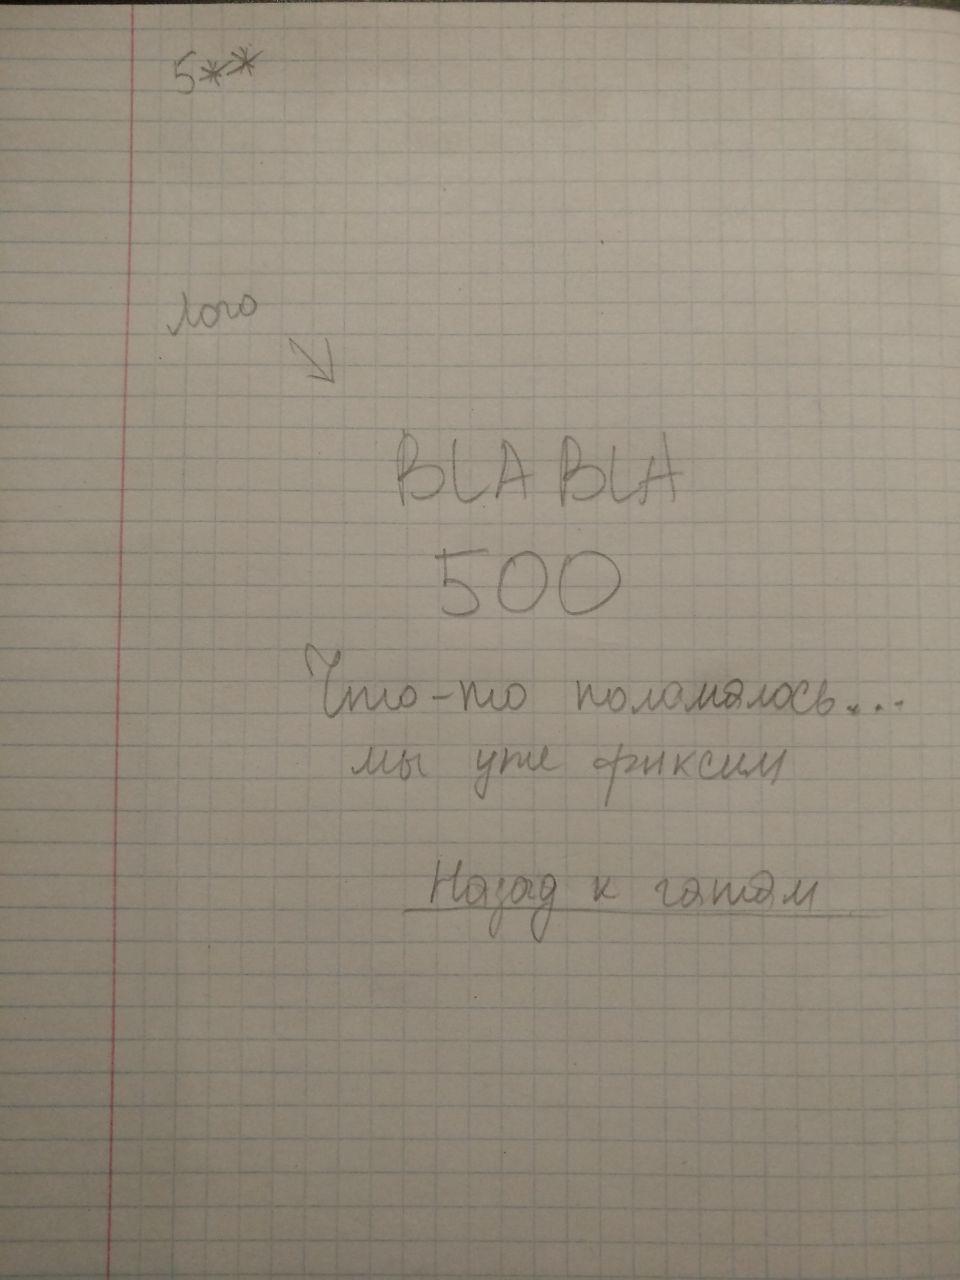 5**
лого
BLABLA
500
Что-то поломалось...
мы уже фиксим
Назад к чатам